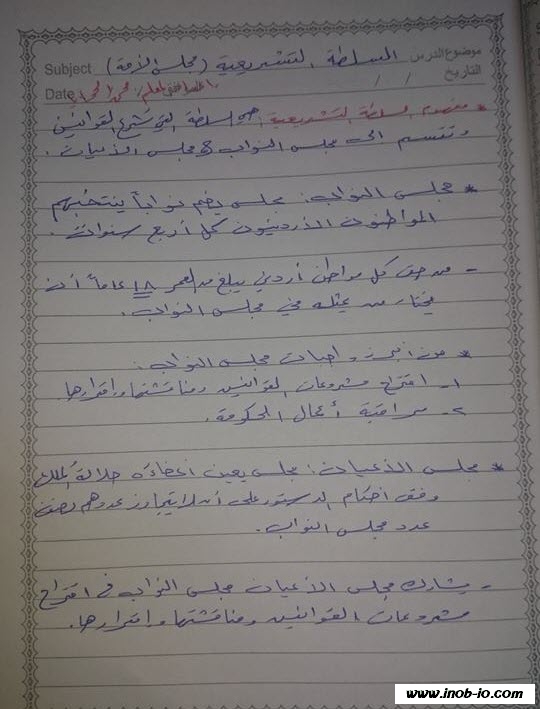 موضوع الدرس السلطة التشريعية (مجلس الأمة) Subject
التاريخ / / Date
* مفهوم السلطة التشريعية: هي السلطة التي تشرع القوانين
وتقسم الى مجلس النواب و مجلس الأعيان.
* مجلس النواب: مجلس يضم نواباً ينتخبهم
المواطنون الأردنيون كل أربع سنوات.
- من حق كل مواطن أردني يبلغ من العمر ١٨ عاماً أن
يختار من يمثله في مجلس النواب.
* من أبرز واجبات مجلس النواب:
١- اقتراح مشروعات القوانين ومناقشتها واقرارها
٢- مراقبة أعمال الحكومة.
* مجلس الأعيان: مجلس يعين أعضاءه جلالة الملك
وفق أحكام الدستور على أن لا يتجاوز عددهم نصف
عدد مجلس النواب.
- يشارك مجلس الأعيان مجلس النواب في اقتراح
مشروعات القوانين ومناقشتها واقرارها.
www.inob-io.com